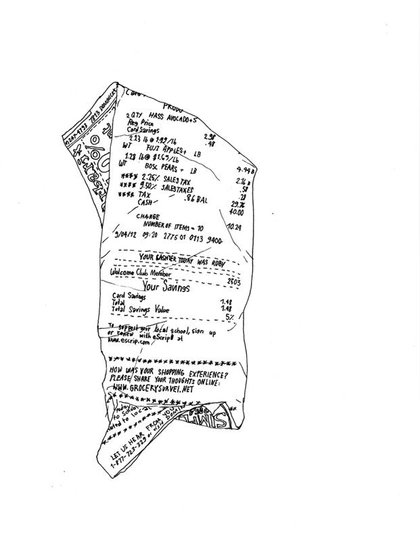 2 QTY HASS AVOCADOS
Reg Price 2.98
Card Savings .48
WT FUJI APPLES+ LB 4.44 B
WT BOSC PEARS + LB 2.16 B
**** 2.25% SALES TAX .58
**** 9.50% SALES TAXES
**** TAX .86 BAL 29.76
CASH 40.00
CHANGE 10.24
NUMBER OF ITEMS = 10
9/04/12 09:20 2775 01 0213 9400
YOUR CASHIER TODAY WAS RUBY
Welcome Club Member 2603
Your Savings
Card Savings 1.48
Total 1.48
Total Savings Value 5%
To support your local school, sign up
or renew with eScrip® at
www.escrip.com
HOW WAS YOUR SHOPPING EXPERIENCE?
PLEASE SHARE YOUR THOUGHTS ONLINE:
WWW.GROCERYSURVEY.NET
LET US HEAR FROM YOU